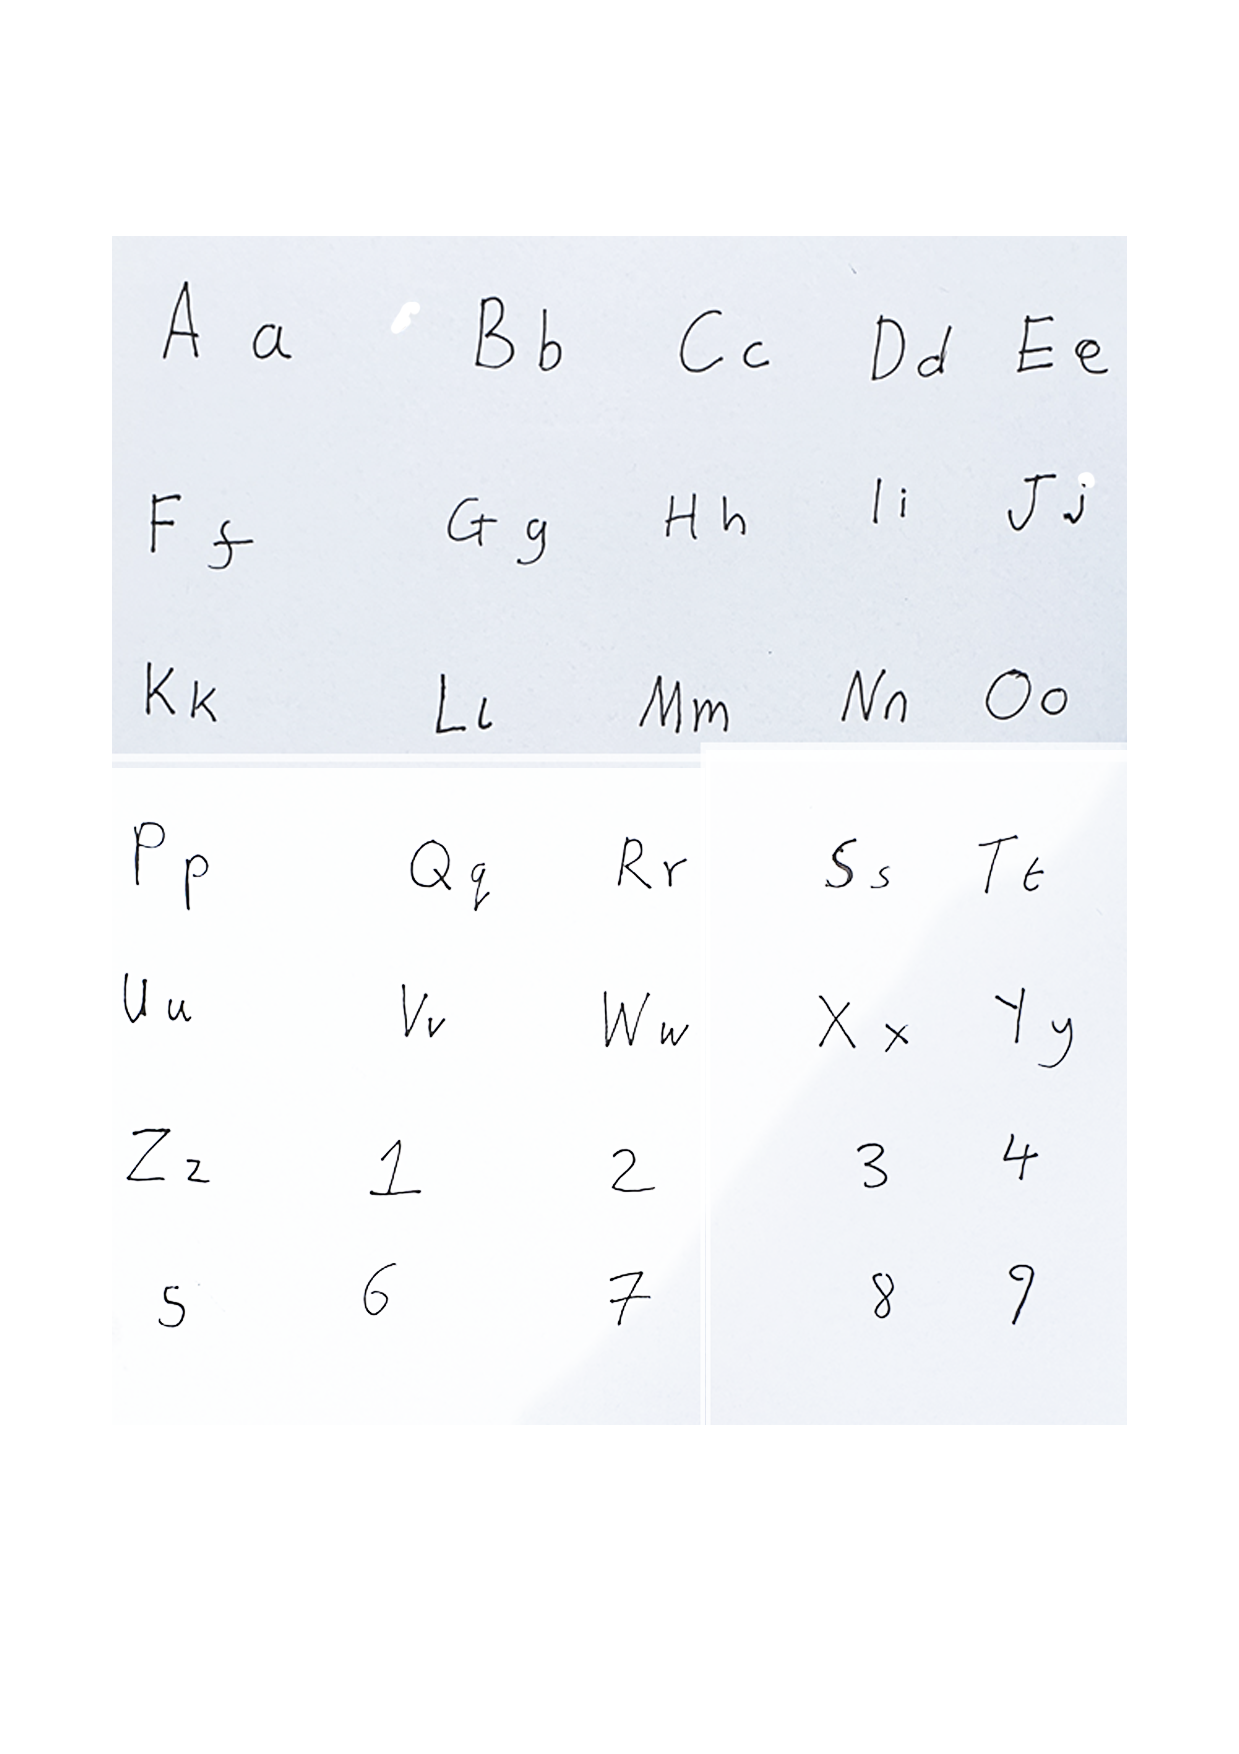 A a Bb Cc Dd Ee
F f G g H h Ii Jj
Kk Ll Mm Nn Oo
Pp Qq Rr Ss Tt
Uu Vv Ww Xx Yy
Zz 1 2 3 4
5 6 7 8 9